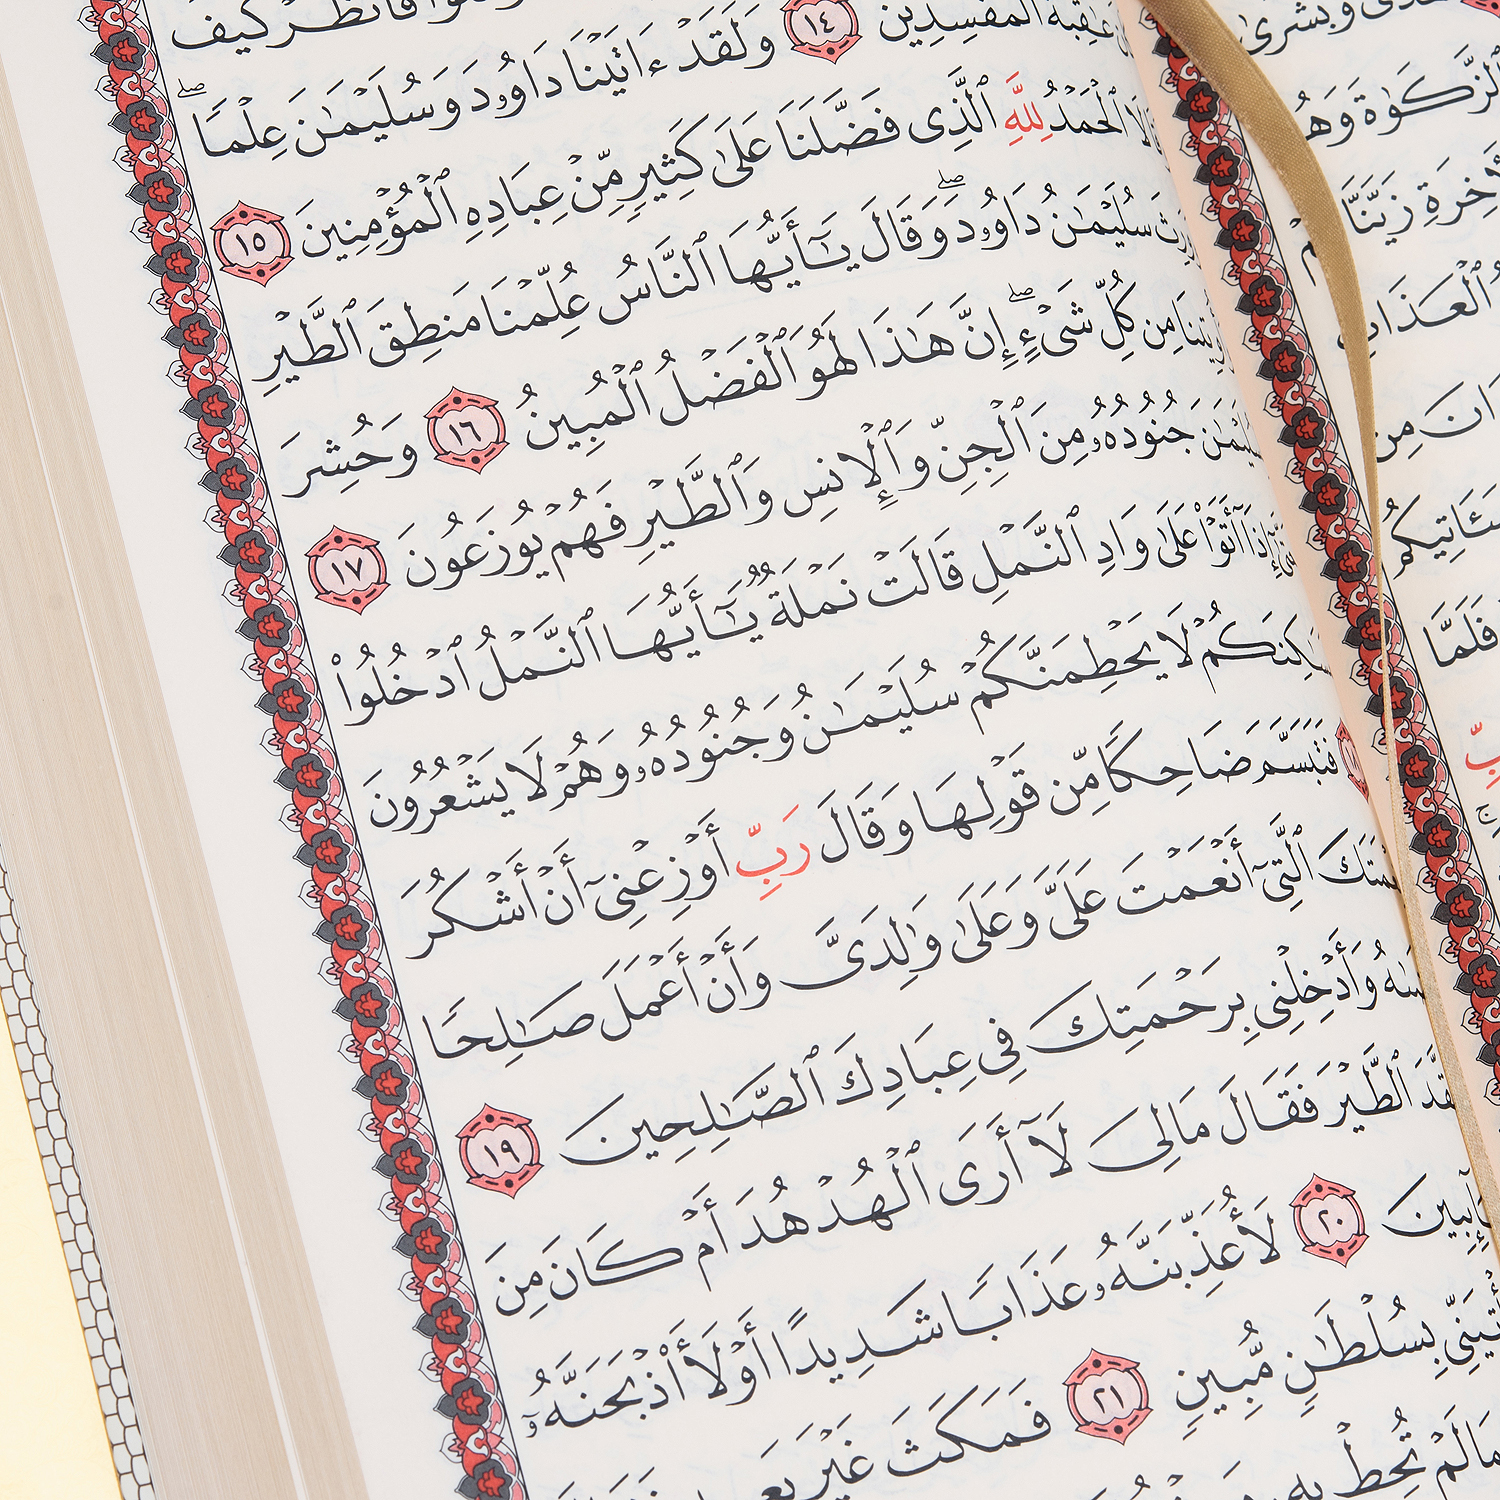 فَٱنظُرْ كَيْفَ
عَٰقِبَةُ ٱلْمُفْسِدِينَ ١٤ وَلَقَدْ ءَاتَيْنَا دَاوُۥدَ وَسُلَيْمَٰنَ عِلْمًا ۖ
ٱلْحَمْدُ لِلَّهِ ٱلَّذِى فَضَّلَنَا عَلَىٰ كَثِيرٍ مِّنْ عِبَادِهِ ٱلْمُؤْمِنِينَ ١٥
سُلَيْمَٰنُ دَاوُۥدَ ۖ وَقَالَ يَٰٓأَيُّهَا ٱلنَّاسُ عُلِّمْنَا مَنطِقَ ٱلطَّيْرِ
مِن كُلِّ شَىْءٍ ۖ إِنَّ هَٰذَا لَهُوَ ٱلْفَضْلُ ٱلْمُبِينُ ١٦ وَحُشِرَ
جُنُودُهُۥ مِنَ ٱلْجِنِّ وَٱلْإِنسِ وَٱلطَّيْرِ فَهُمْ يُوزَعُونَ ١٧
إِذَآ أَتَوْا۟ عَلَىٰ وَادِ ٱلنَّمْلِ قَالَتْ نَمْلَةٌ يَٰٓأَيُّهَا ٱلنَّمْلُ ٱدْخُلُوا۟
لَا يَحْطِمَنَّكُمْ سُلَيْمَٰنُ وَجُنُودُهُۥ وَهُمْ لَا يَشْعُرُونَ
فَتَبَسَّمَ ضَاحِكًا مِّن قَوْلِهَا وَقَالَ رَبِّ أَوْزِعْنِىٓ أَنْ أَشْكُرَ
ٱلَّتِىٓ أَنْعَمْتَ عَلَىَّ وَعَلَىٰ وَٰلِدَىَّ وَأَنْ أَعْمَلَ صَٰلِحًا
وَأَدْخِلْنِى بِرَحْمَتِكَ فِى عِبَادِكَ ٱلصَّٰلِحِينَ ١٩
ٱلطَّيْرَ فَقَالَ مَا لِىَ لَآ أَرَى ٱلْهُدْهُدَ أَمْ كَانَ مِنَ
٢٠ لَأُعَذِّبَنَّهُۥ عَذَابًا شَدِيدًا أَوْ لَأَا۟ذْبَحَنَّهُۥٓ
بِسُلْطَٰنٍ مُّبِينٍ ٢١ فَمَكَثَ غَيْرَ
مَا لَمْ تُحِطْ بِهِۦ
وَبُشْرَىٰ
ٱلزَّكَوٰةَ
زَيَّنَّا
ٱلْعَذَابِ
مِن
فَلَمَّا